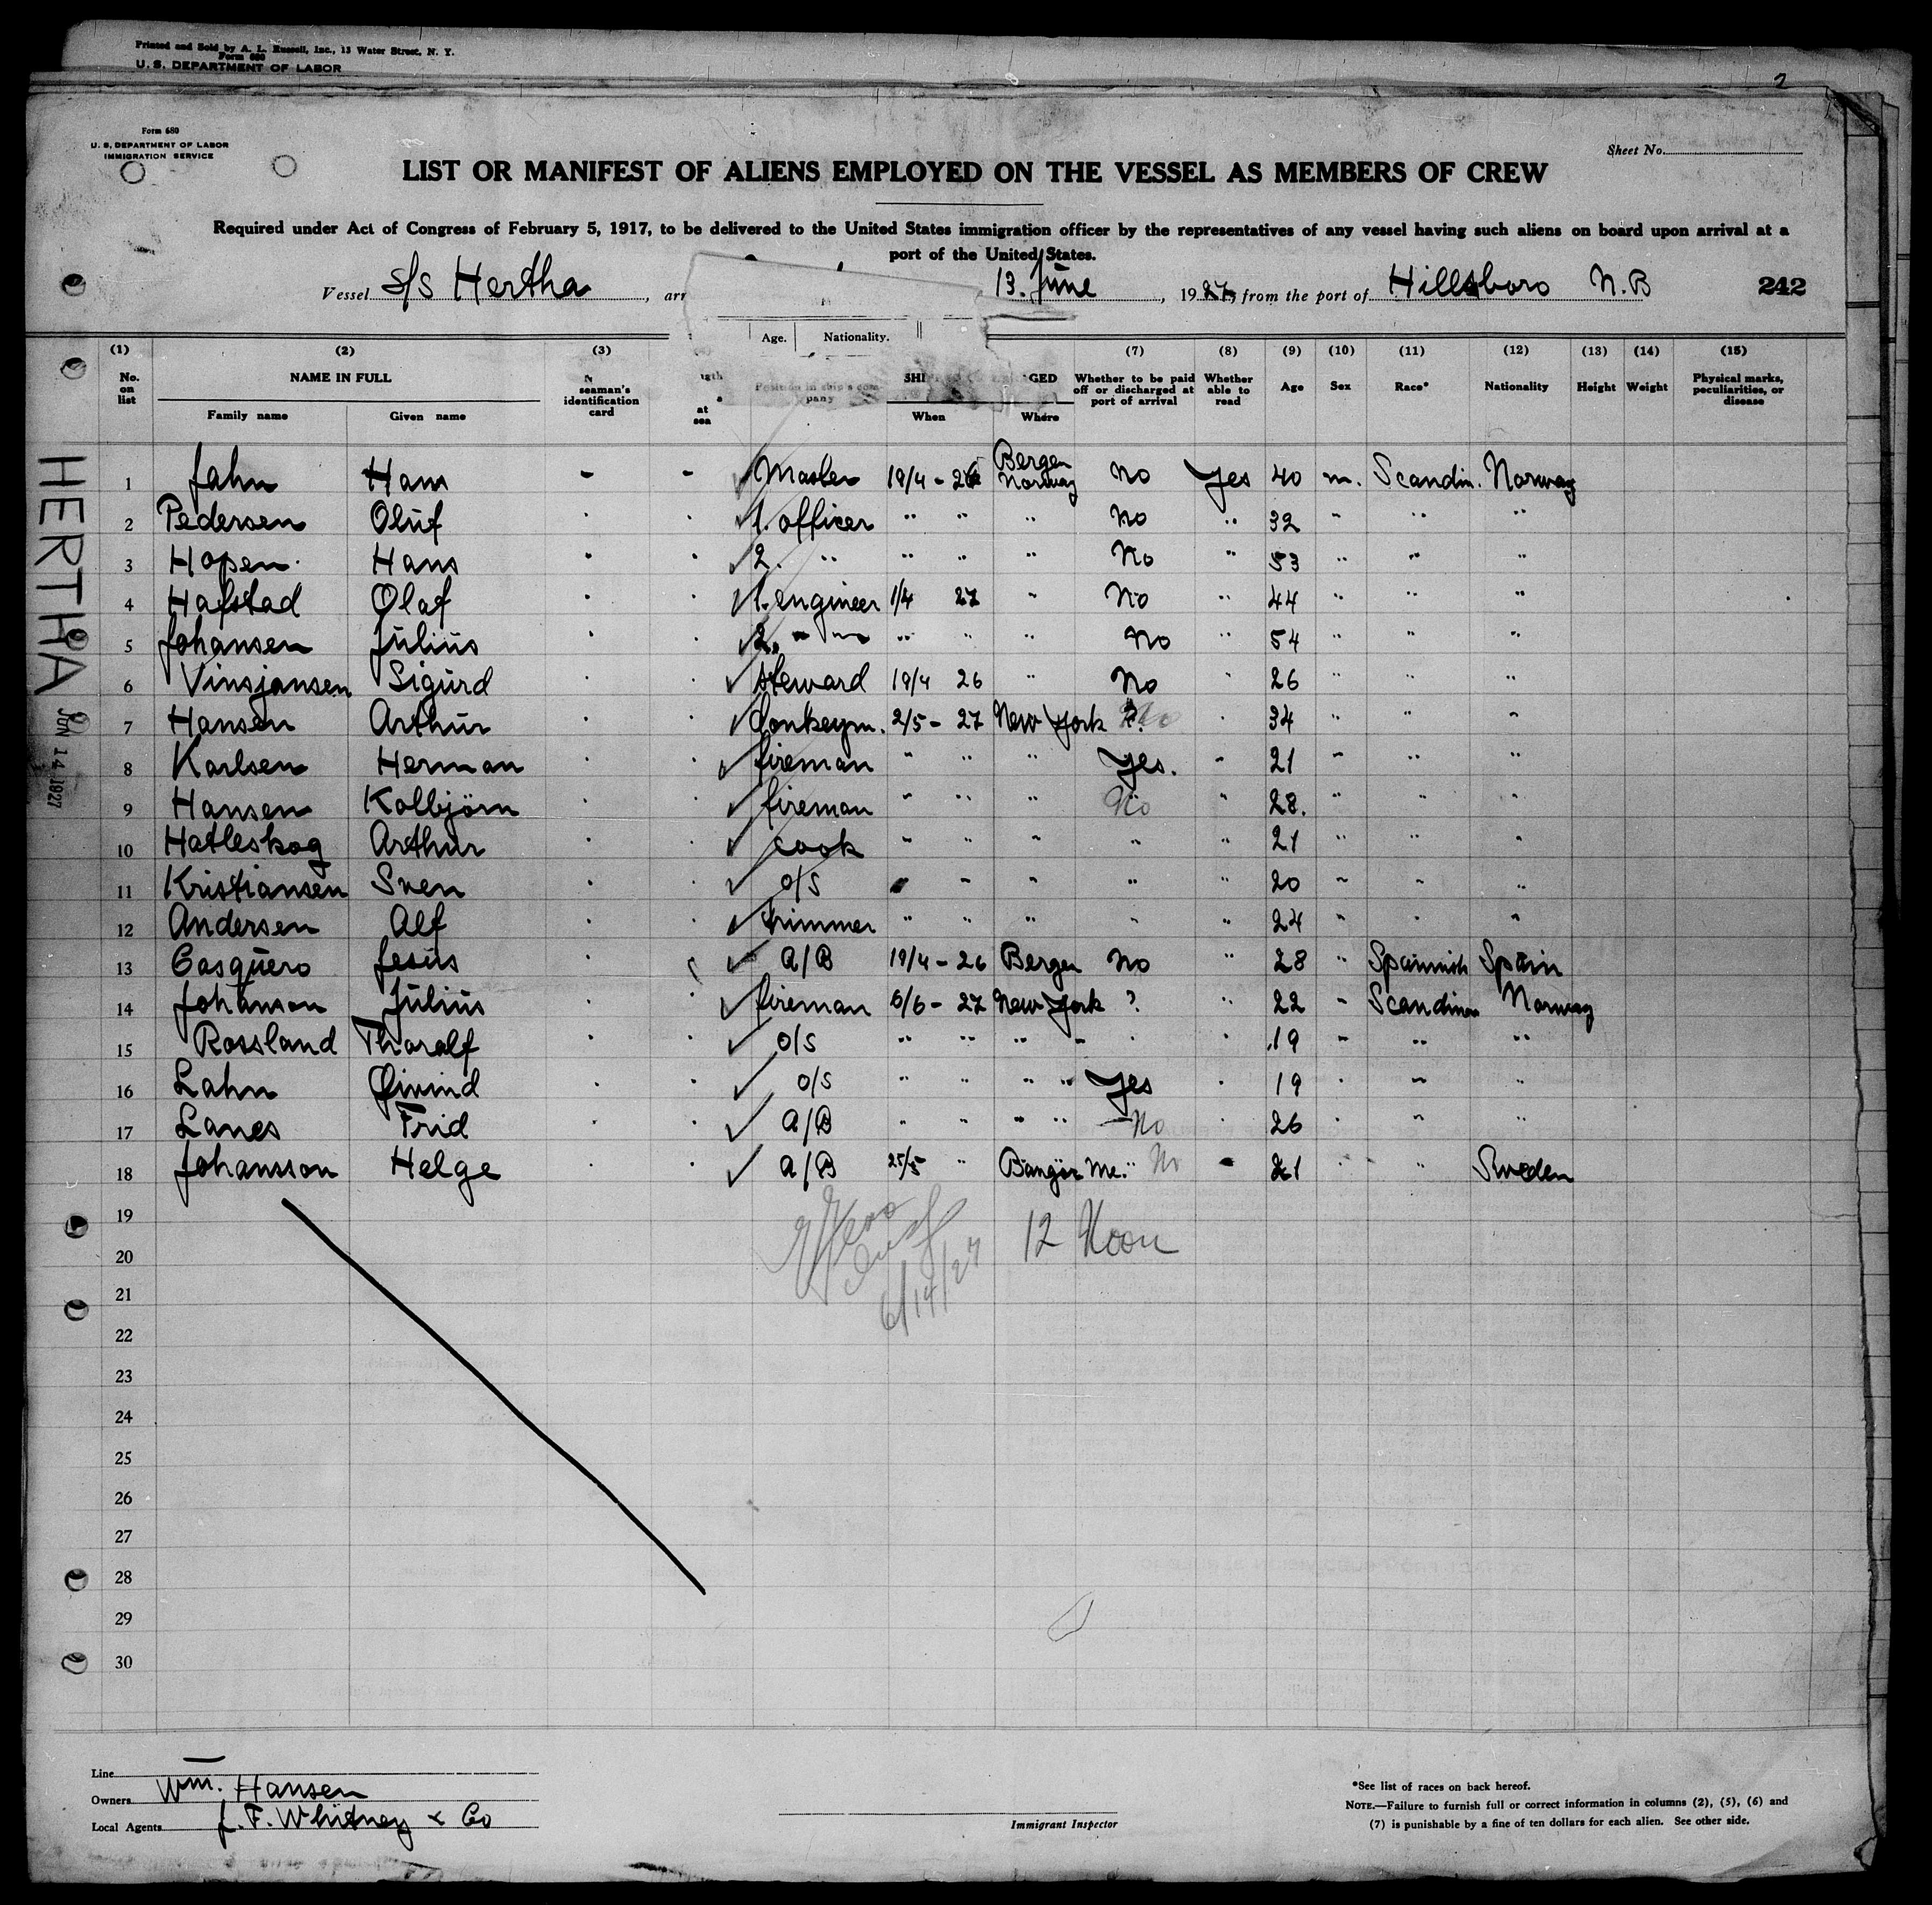 Printed and Sold by A. L. Russell, Inc., 13 Water Street, N. Y.
Form 680
U. S. DEPARTMENT OF LABOR
2
Form 680
U. S. DEPARTMENT OF LABOR
IMMIGRATION SERVICE
Sheet No.
LIST OR MANIFEST OF ALIENS EMPLOYED ON THE VESSEL AS MEMBERS OF CREW
Required under Act of Congress of February 5, 1917, to be delivered to the United States immigration officer by the representatives of any vessel having such aliens on board upon arrival at a
port of the United States.
Vessel S/S Hertha, arr 13. June, 1927, from the port of Hillsboro N.B 242
Age. Nationality.
(1) (2) (3) (7) (8) (9) (10) (11) (12) (13) (14) (15)
No. on list NAME IN FULL seaman's identification card at sea Position in ship's company SHI GED Whether to be paid off or discharged at port of arrival Whether able to read Age Sex Race* Nationality Height Weight Physical marks, peculiarities, or disease
Family name Given name When Where
1 Jahn Hans - - Master 19/4 - 26 Bergen Norway No Yes 40 m. Scandin. Norway
2 Pedersen Oluf " " 1. officer " " " No " 32 " " "
3 Hopen Hans " " 2. " " " " No " 53 " " "
4 Hafstad Olaf " " 1. engineer 1/4 27 " No " 44 " " "
5 Johansen Julius " " 2. " " " " " No " 54 " " "
6 Vinsjansen Sigurd " " Steward 19/4 26 " No " 26 " " "
7 Hansen Arthur " " Donkeym. 2/5 - 27 New York ? No " 34 " " "
8 Karlsen Herman " " fireman " " " Yes. " 21 " " "
9 Hansen Kolbjörn " " fireman " " " No " 28. " " "
10 Hatleskog Arthur " " cook " " " " " 21 " " "
11 Kristiansen Sven " " O/S " " " " " 20 " " "
12 Andersen Alf " " trimmer " " " " " 24 " " "
13 Casquero Jesus " A/B 19/4 - 26 Bergen No " 28 " Spannish Spain
14 Johanson Julius " " fireman 6/6 - 27 New York ? " 22 " Scandin Norway
15 Rossland Tharalf " " O/S " " " " " " 19 " " "
16 Lahn Øivind " " O/S " " " " Yes " 19 " " "
17 Lanes Frid " " A/B " " " " No " 26 " " "
18 Johansson Helge " " A/B 25/5 " Bangor Me. " No " 21 " " Sweden
19
12 Noon
20
21
6/14/27
22
23
24
25
26
27
28
29
30
HERTHA
JUN 14 1927
Line
Owners Wm. Hansen
Local Agents J. F. Whitney & Co
Immigrant Inspector
*See list of races on back hereof.
NOTE.—Failure to furnish full or correct information in columns (2), (5), (6) and
(7) is punishable by a fine of ten dollars for each alien. See other side.